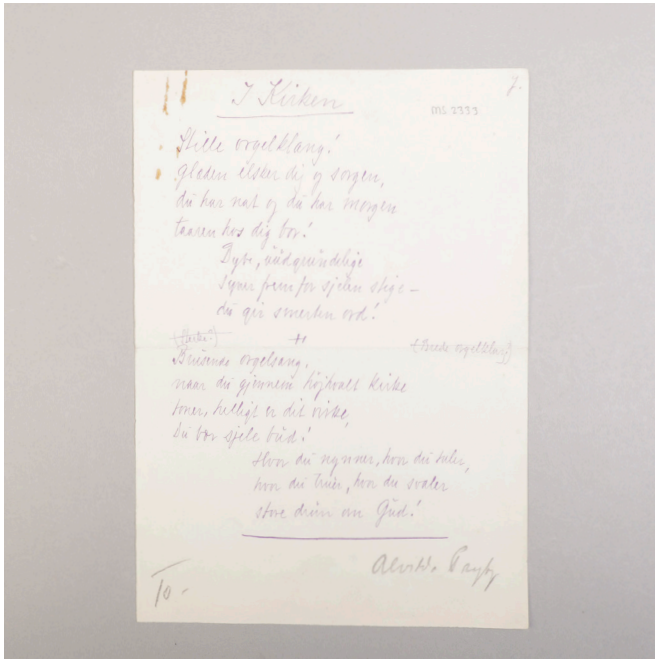 7.
I Kirken
ms. 2333
Stille orgelklang!
glæden elsker dig og sorgen,
du har nat og du har morgen
taaren hos dig bor!
Dybe, uudgrundelige
syner frem for sjælen stige –
du gir smerten ord!
Brusende orgelsang,
naar du gjennem høihvalt kirke
toner, helligt er dit virke,
du bær sjæle bud!
Hvor du nynner, hvor du taler,
hvor du truer, hvor du svaler
store drøm om Gud!
Alvilde
10 -